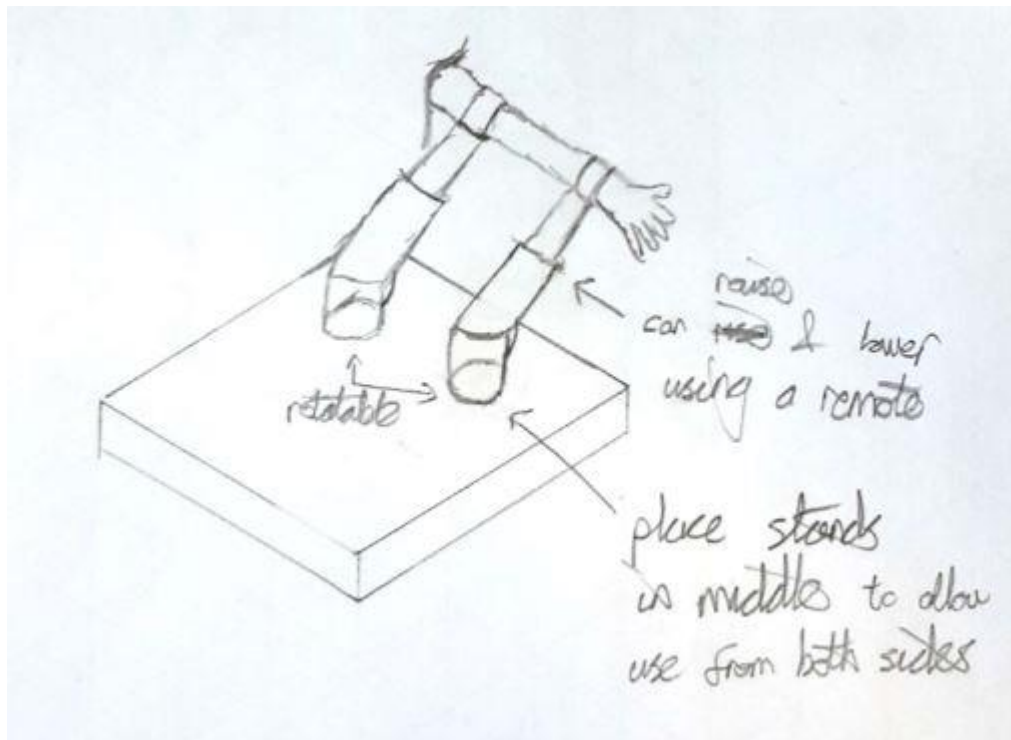 rotatable
raise
can & lower
using a remote
place stands
in middle to allow
use from both sides